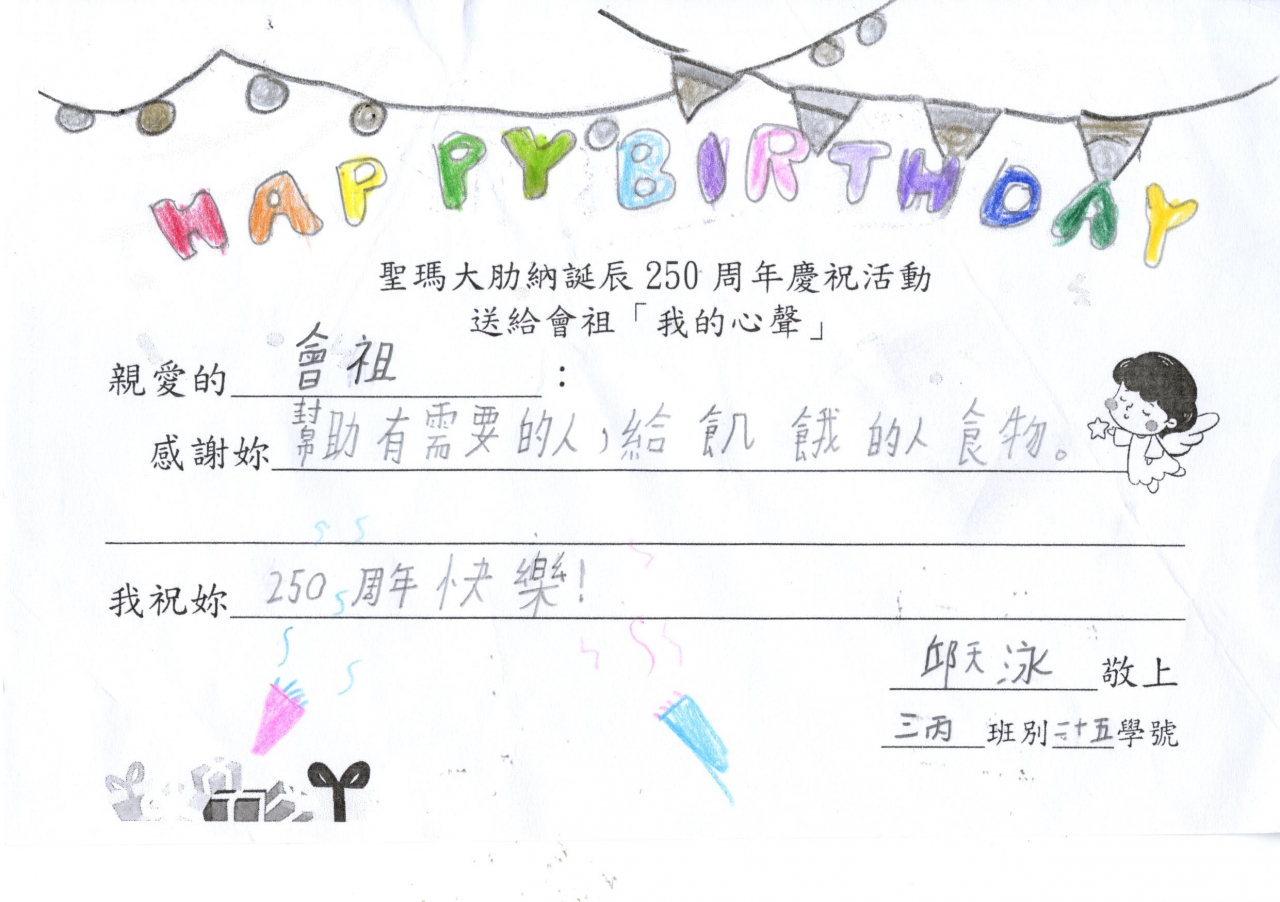 HAPPY BIRTHDAY
聖瑪大肋納誕辰 250 周年慶祝活動
送給會祖「我的心聲」
親愛的會祖：
感謝妳幫助有需要的人，給飢餓的人食物。
我祝妳250周年快樂！
邱天泳敬上
三丙班別二十五學號